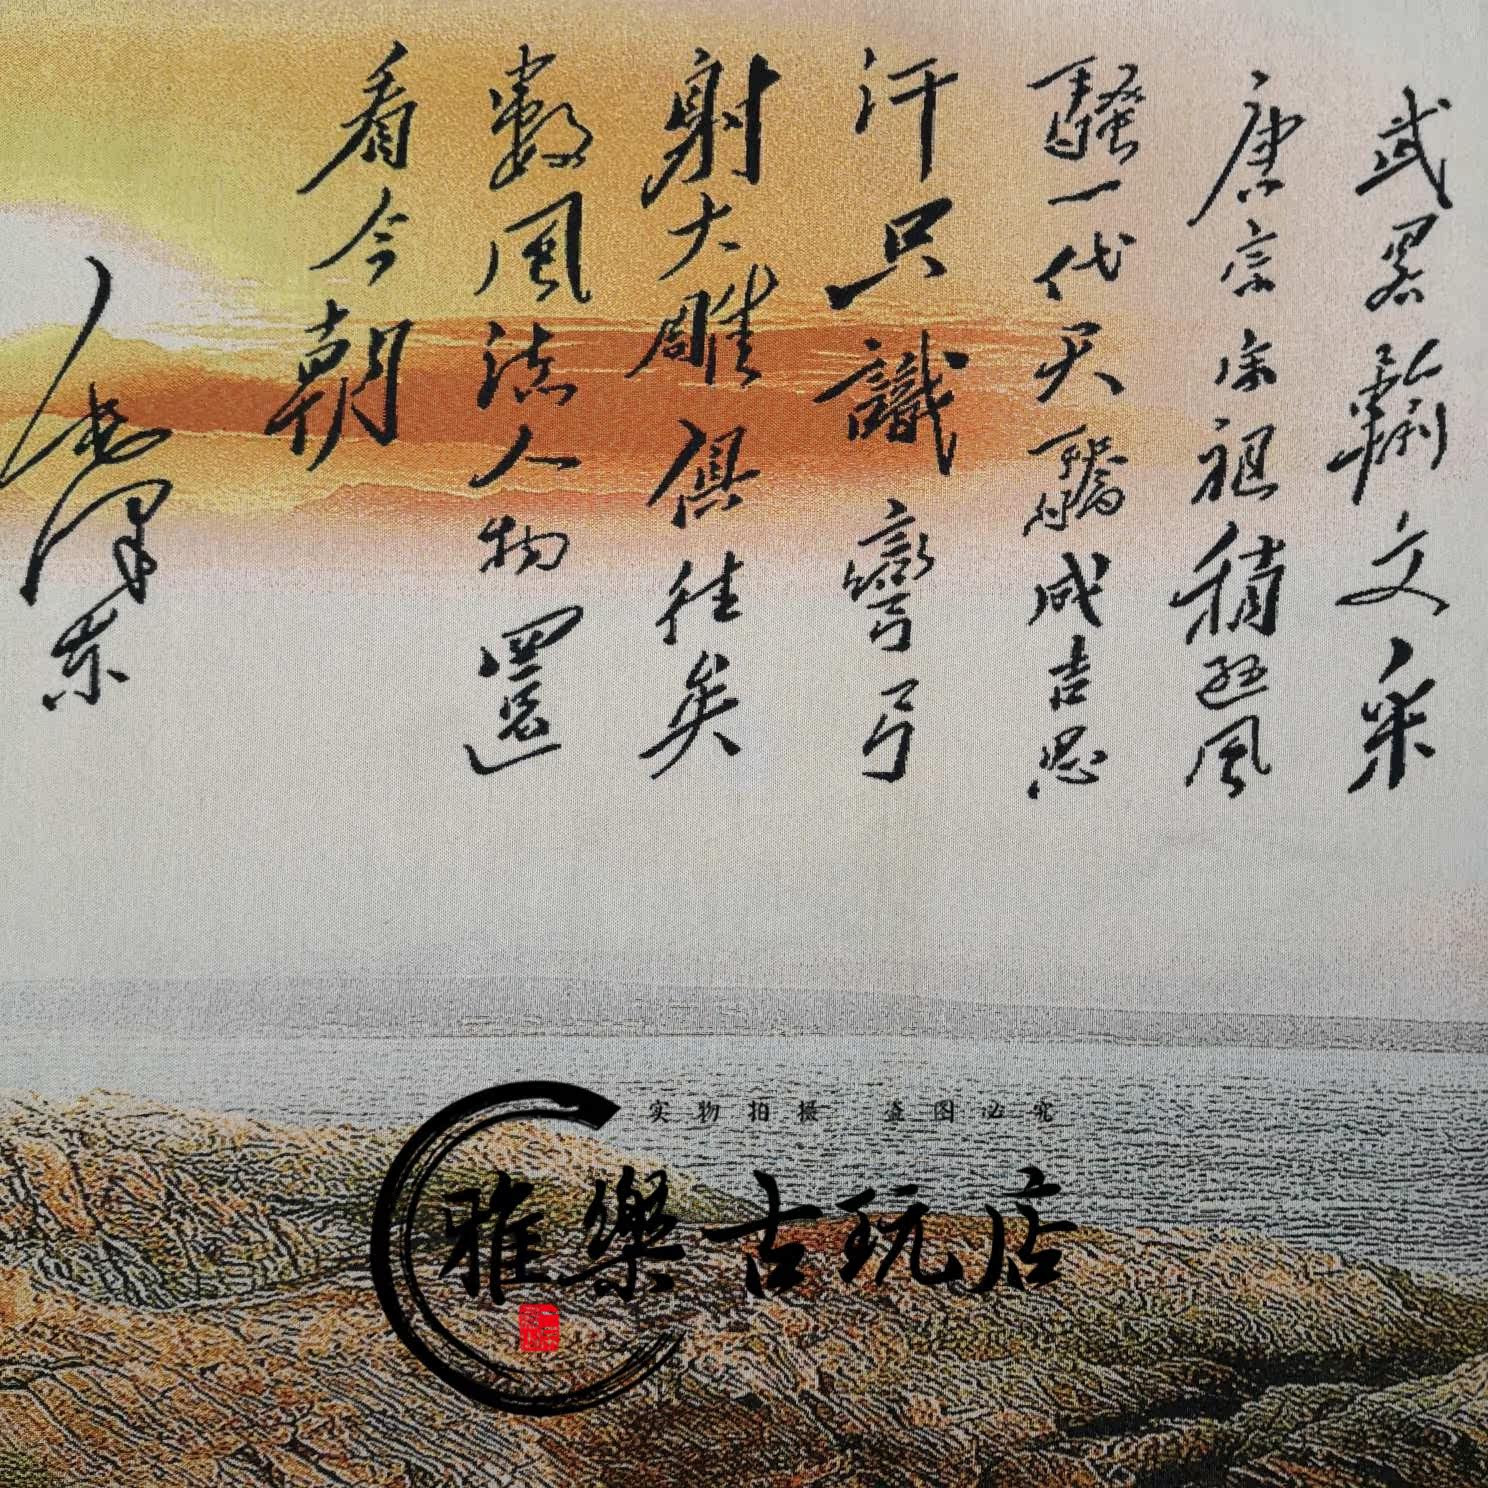 武略輸文采
唐宗宋祖稍遜風
騷一代天驕成吉思
汗只識彎弓
射大雕俱往矣
數風流人物還
看今朝
毛澤東
实物拍摄 盗图必究
雅樂古玩店